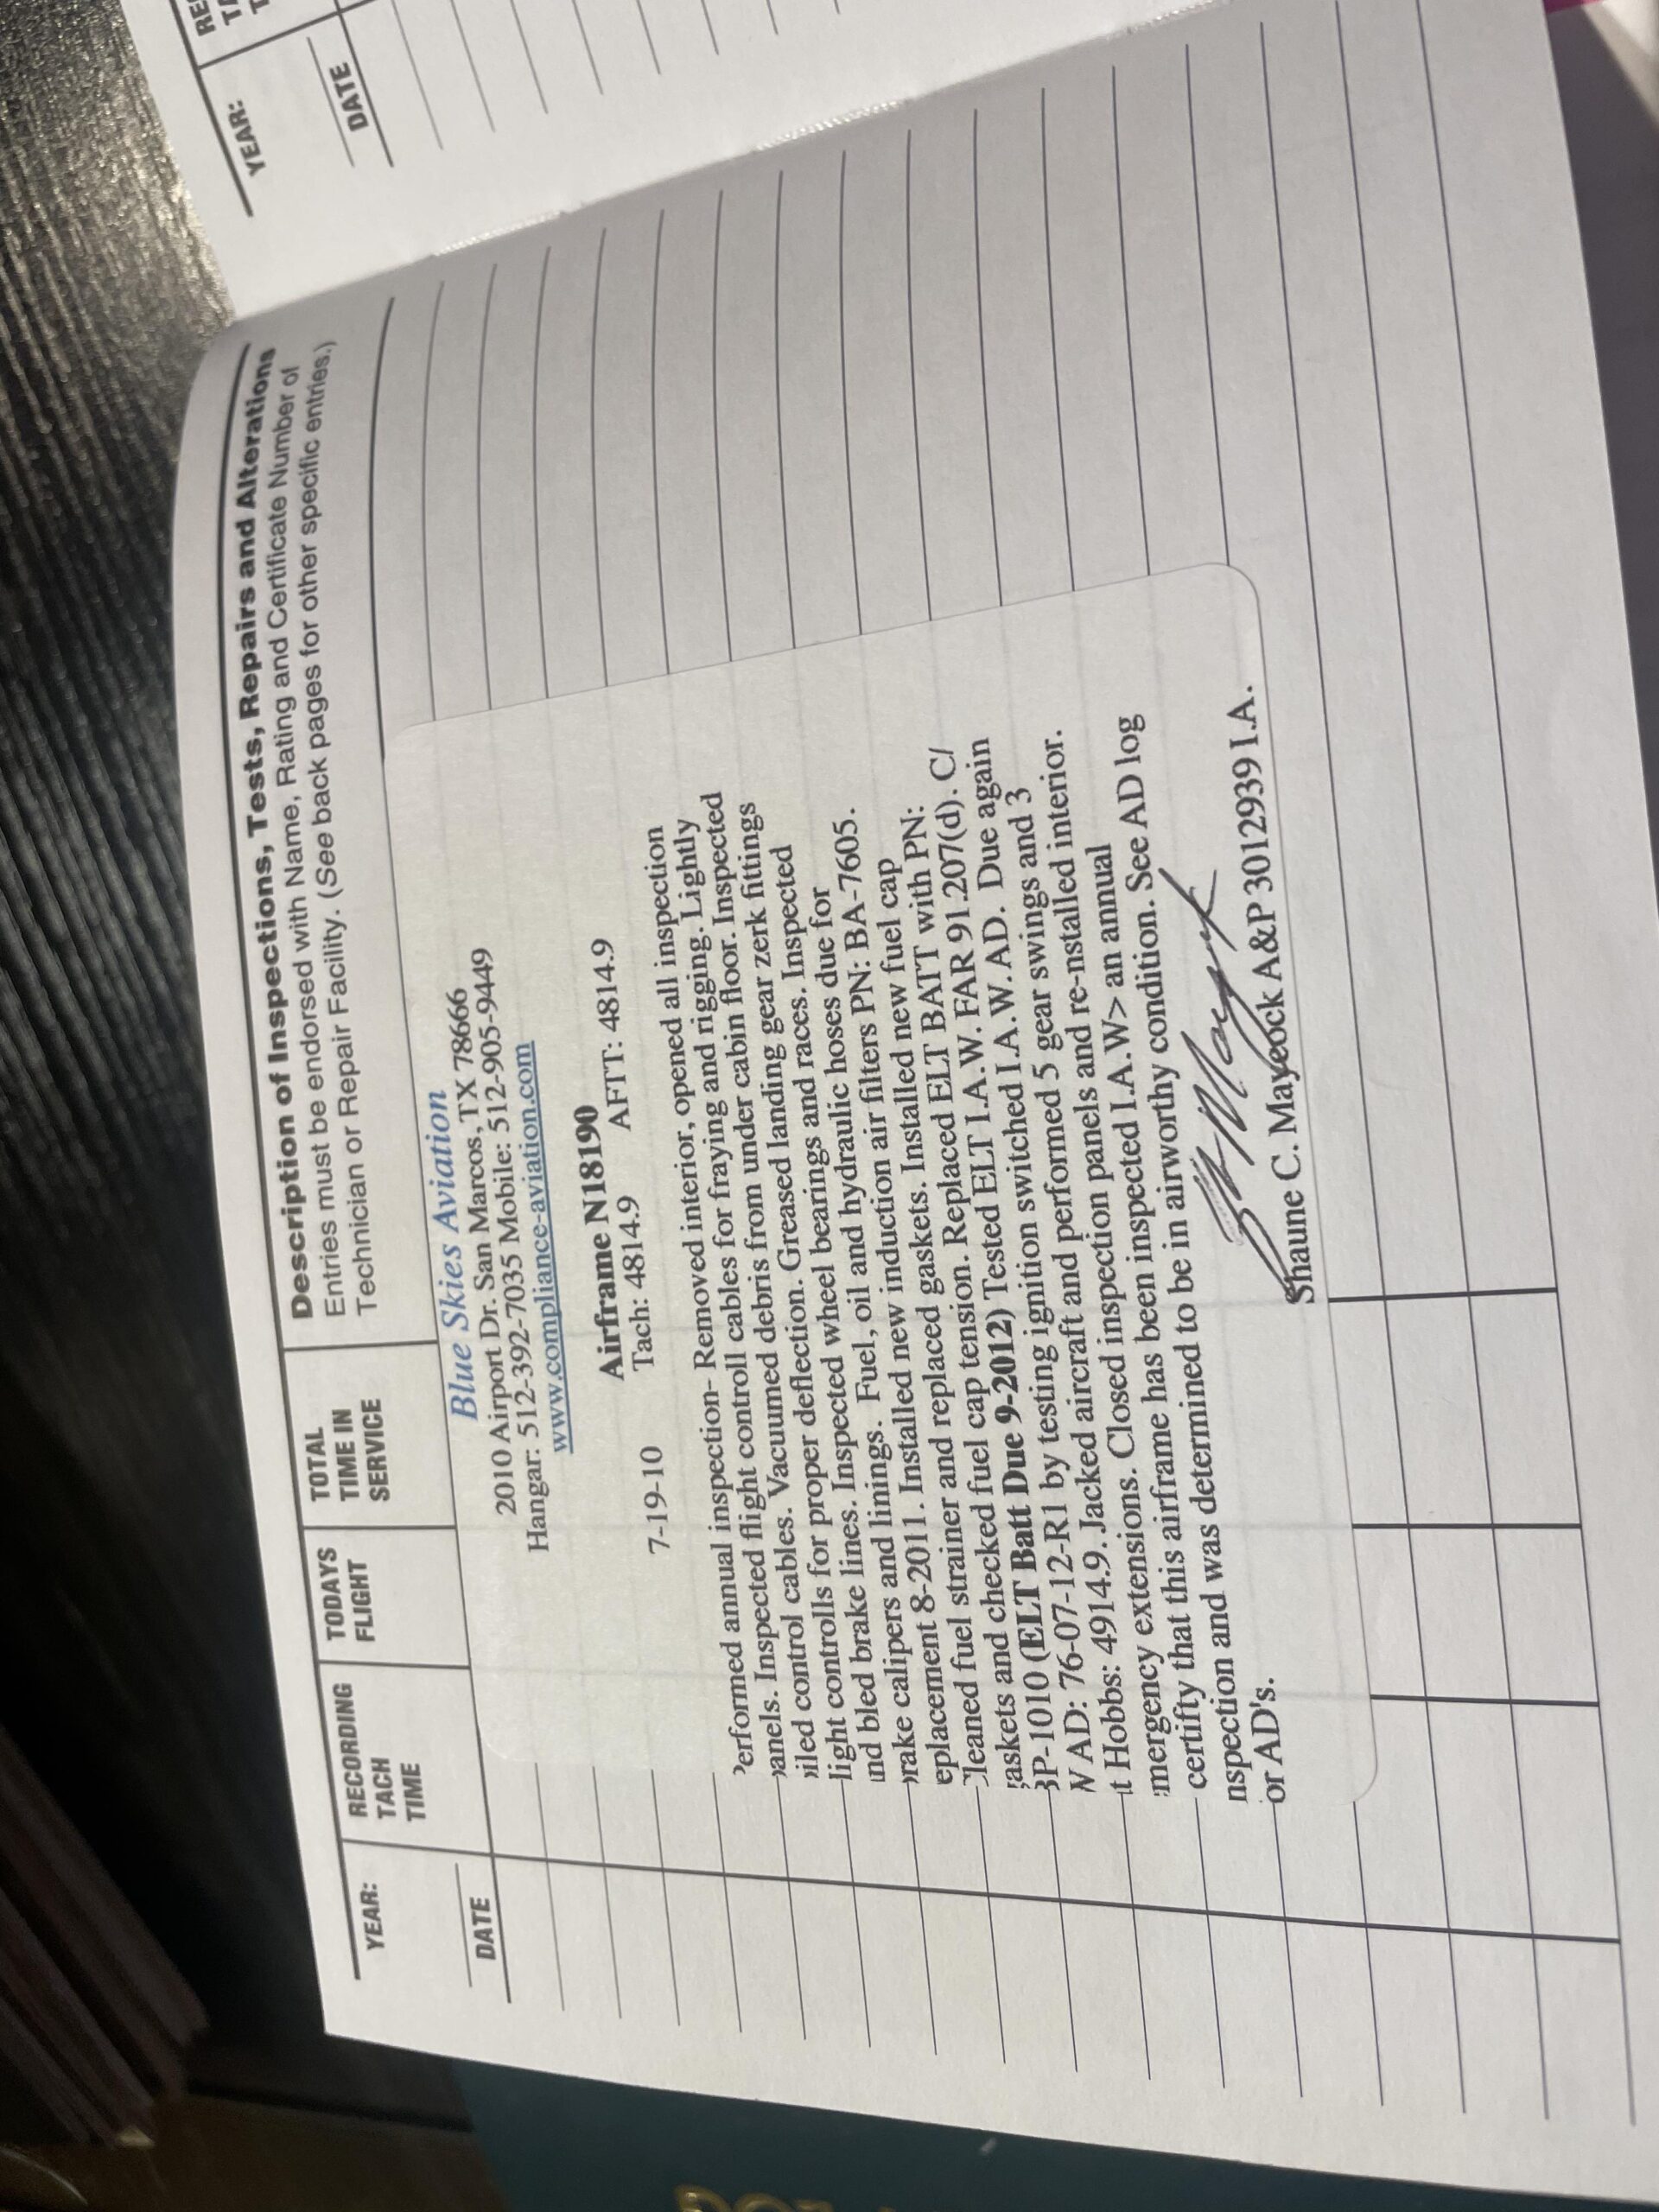 YEAR:
DATE
RECORDING
TACH
TIME
TODAYS
FLIGHT
TOTAL
TIME IN
SERVICE
Description of Inspections, Tests, Repairs and Alterations
Entries must be endorsed with Name, Rating and Certificate Number of
Technician or Repair Facility. (See back pages for other specific entries.)
Blue Skies Aviation
2010 Airport Dr. San Marcos, TX 78666
Hangar: 512-392-7035 Mobile: 512-905-9449
www.compliance-aviation.com
Airframe N18190
7-19-10 Tach: 4814.9 AFTT: 4814.9
erformed annual inspection- Removed interior, opened all inspection
anels. Inspected flight controll cables for fraying and rigging. Lightly
iled control cables. Vacuumed debris from under cabin floor. Inspected
light controlls for proper deflection. Greased landing gear zerk fittings
nd bled brake lines. Inspected wheel bearings and races. Inspected
rake calipers and linings. Fuel, oil and hydraulic hoses due for
eplacement 8-2011. Installed new induction air filters PN: BA-7605.
leaned fuel strainer and replaced gaskets. Installed new fuel cap
askets and checked fuel cap tension. Replaced ELT BATT with PN:
BP-1010 (ELT Batt Due 9-2012) Tested ELT I.A.W. FAR 91.207(d). C/
W AD: 76-07-12-R1 by testing ignition switched I.A.W. AD. Due again
t Hobbs: 4914.9. Jacked aircraft and performed 5 gear swings and 3
mergency extensions. Closed inspection panels and re-nstalled interior.
certifty that this airframe has been inspected I.A.W> an annual
nspection and was determined to be in airworthy condition. See AD log
or AD's.
Shaune C. Mayeock A&P 3012939 I.A.
YEAR:
DATE